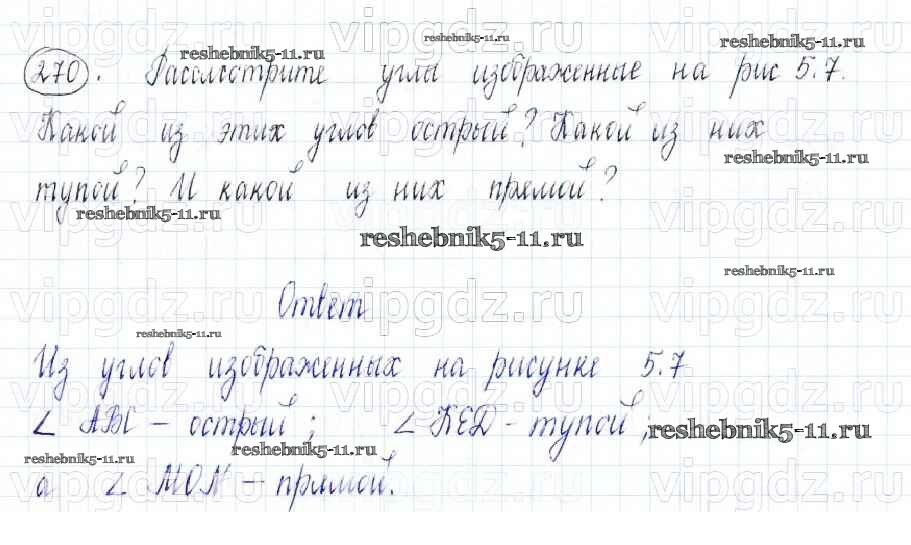 270. Рассмотрите углы изображенные на рис 5.7.
Какой из этих углов острый? Какой из них
тупой? И какой из них прямой?
Ответ
Из углов изображенных на рисунке 5.7
∠ ABC – острый ; ∠ KED – тупой ;
а ∠ MON – прямой.
vipgdz.ru
reshebnik5-11.ru